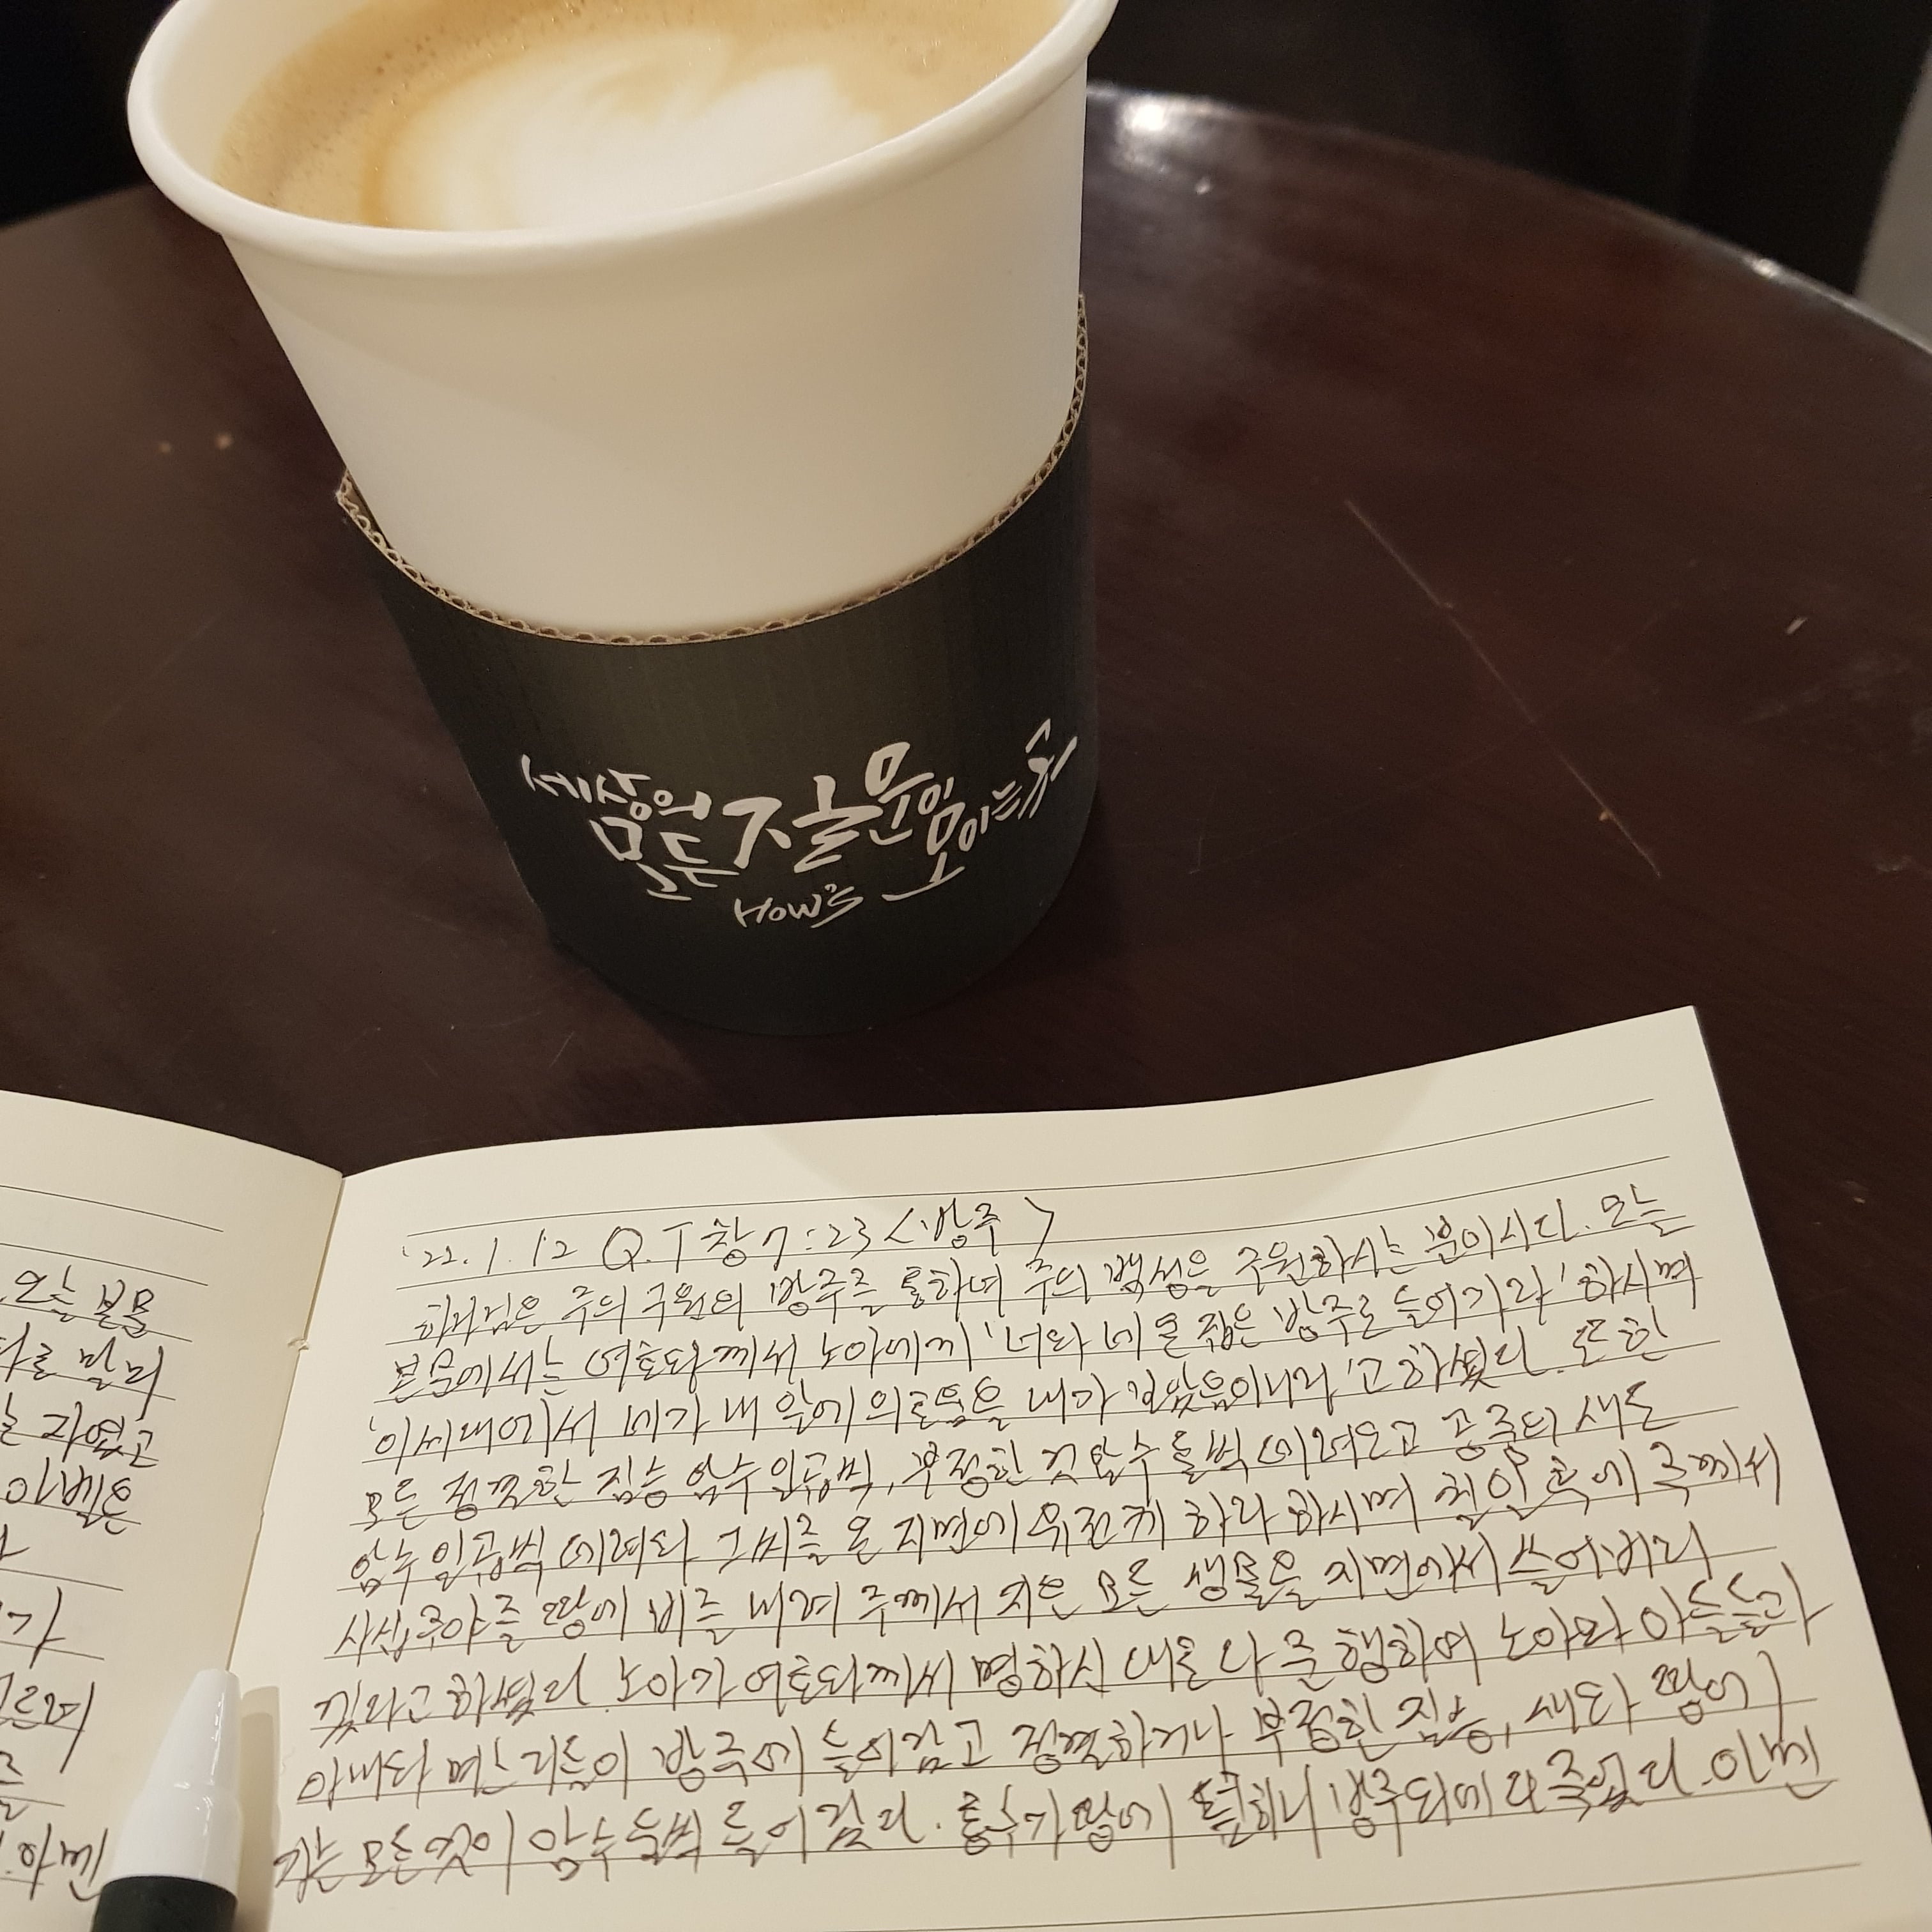 세상의
모든 질문이
모이는 곳
HOW's
'22. 1. 12 Q.T 창 7:23 <방주>
하나님은 주의 구원의 방주를 통하여 주의 백성을 구원하시는 분이시다. 오늘
본문에서는 여호와께서 노아에게 '너와 네 온 집은 방주로 들어가라' 하시며
'이 세대에서 네가 내 앞에 의로움을 내가 보았음이니라'고 하셨다. 또한
모든 정결한 짐승 암수 일곱씩, 부정한 것 암수 둘씩 데려오고 공중의 새도
암수 일곱씩 데려와 그 씨를 온 지면에 유전케 하라 하시며 칠일 후에 주께서
사십주야를 땅에 비를 내려 주께서 지은 모든 생물을 지면에서 쓸어버리
겠다고 하셨다. 노아가 여호와께서 명하신 대로 다 준행하여 노아와 아들들과
아내와 며느리들이 방주에 들어갔고 정결하거나 부정한 짐승, 새와 땅에
기는 모든 것이 암수 둘씩 들어갔다. 홍수가 땅에 하니 방주외에 다 죽었다. 아멘
오늘 본문
지었고
아벨은
가
아멘